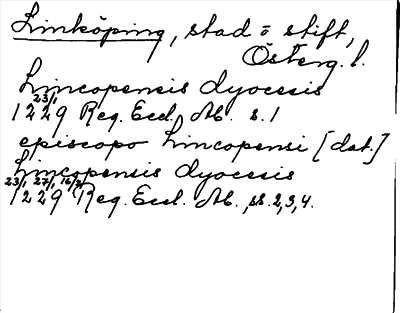 Linköping, stad o stift,
Österg. l.
Lincopensis dyocesis
23/1 1229 Reg. Eccl. Ab. s. 1
episcopo Lincopensi [dat.]
Lincopensis dyocesis
23/1 27/1 16/2 1229 Reg. Eccl. Ab., ss. 2, 3, 4.